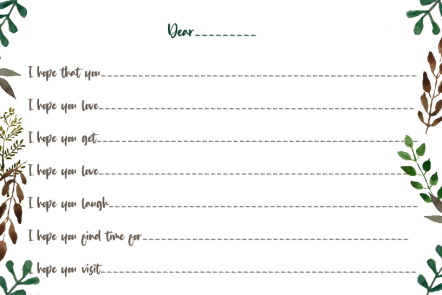 Dear_________
I hope that you
I hope you love
I hope you get
I hope you love
I hope you laugh
I hope you find time for
I hope you visit